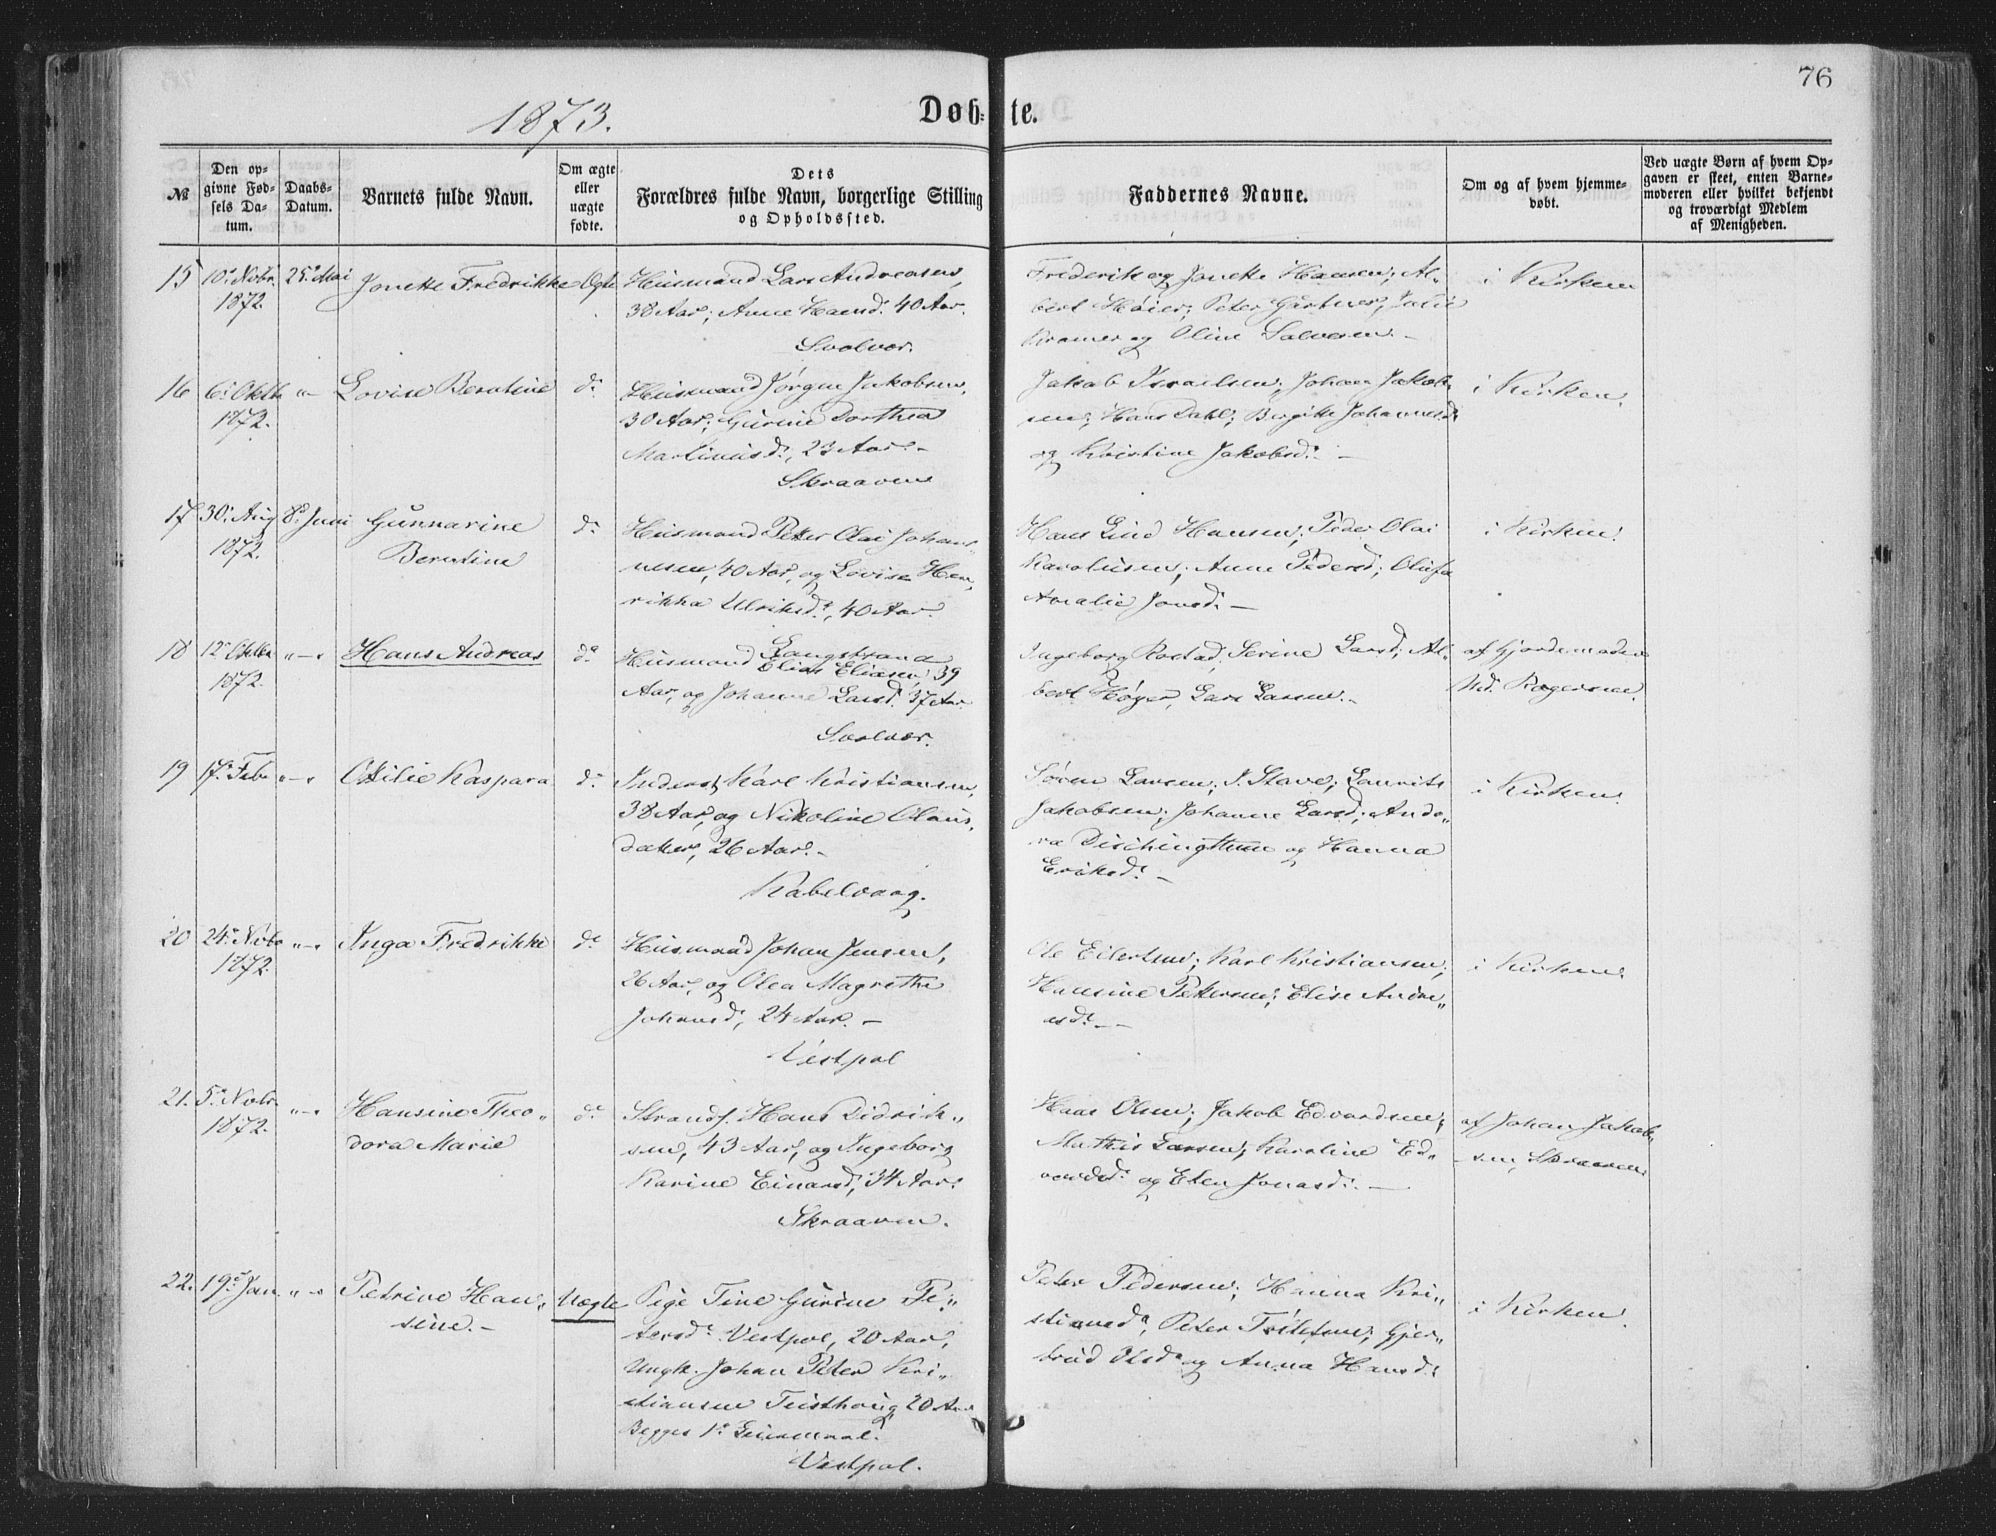 76
1873.
Døb-te.
№
Den op-
givne Fød-
sels Da-
tum.
Daabs-
Datum.
Barnets fulde Navn.
Om ægte
eller
uægte
fødte.
Dets
Forældres fulde Navn, borgerlige Stilling
og Opholdssted.
Faddernes Navne.
Om og af hvem hjemme-
døbt.
Ved uægte Børn af hvem Op-
gaven er skeet, enten Barne-
moderen eller hvilket bekjendt
og troværdigt Medlem
af Menigheden.
15 10de Nobr. 25de Mai Jonette Fredrikke Ægte Huusmand Lars Andreasen,
1872. 38 Aar; Anne Hansd. 40 Aar.
Svolvær.
Frederik og Jonette Hansen; Al-
bert Høier; Peter Gartner; Julie
Kramer og Oline Salvesen. –
i Kirken
16 6te Oktbr. „— Lovise Berntine do Huusmand Jørgen Jakobsen,
1872. 30 Aar; Gurine Dorthea
Martinusd., 23 Aar. –
Skraaven
Jakob Israelsen; Johan Jakob-
sen; Hans Dahl; Birgitte Johannesd.
og Kristine Jakobsd. –
i Kirken.
17 30. Aug. 8de Juni Gunnarine do Huusmand Peter Olai Johan-
1872. Berntine nesen, 40 Aar, og Lovise Hen-
rikka Ulriksd., 40 Aar.
Langstrand
Hans Lind Hansen; Peder Olai
Karoliusen; Anne Pedersd; Olufa
Amalie Jonsd. –
i Kirken.
18 12te Oktbr. „—„ Hans Andreas do Huusmand Elias Eliasen, 39
1872. Aar, og Johanne Larsd. 37 Aar.
Svolvær.
Ingeborg Rostad; Serine Larsd; Al-
bert Høyer, Lars Larsen. –
af Gjordemoder
Md. Rogersen.
19 17de Feb. „—„ Otilie Kaspara do Inderst Karl Kristiansen,
38 Aar, og Nikoline Olaus-
datter, 26 Aar. –
Kabelvaag.
Søren Larsen; J. Slave; Laurits
Jakobsen; Johanne Larsd; Ando-
ra Dischingthun og Hanna
Eriksd. –
i Kirken.
20 24de Nobr. „—„ Inga Fredrikke do Huusmand Johan Jensen,
1872. 26 Aar, og Olea Magrethe
Johansd, 24 Aar. –
Vestpol
Ole Eilertsen; Karl Kristiansen;
Hansine Pettersen; Elise Andre-
asd. –
i Kirken.
21. 5te Nobr. „—„ Hansine Theo- do Strands. Hans Didrik-
1872. dora Marie sen, 43 Aar, og Ingeborg
Karine Einarsd, 34 Aar.
Skraaven.
Hans Olsen; Jakob Edvardsen;
Mathis Larsen; Karoline Ed-
vardsd. og Elen Jonasd. –
af Johan Jakob-
sen, Skraaven
22. 19de Jan. „—„ Petrine Han- Uægte Pige Tine Gurine Pe-
sine. – tersd. Vestpol, 20 Aar,
Ungk. Johan Peter Kri-
stiansen Teisthoug 20 Aar
Begges 1ste Leiermaal.
Vestpol.
Peter Pedersen; Hanna Kri-
stiansd, Peter Tollefsen; Gjer-
trud Olsd. og Anna Hansd.
i Kirken.